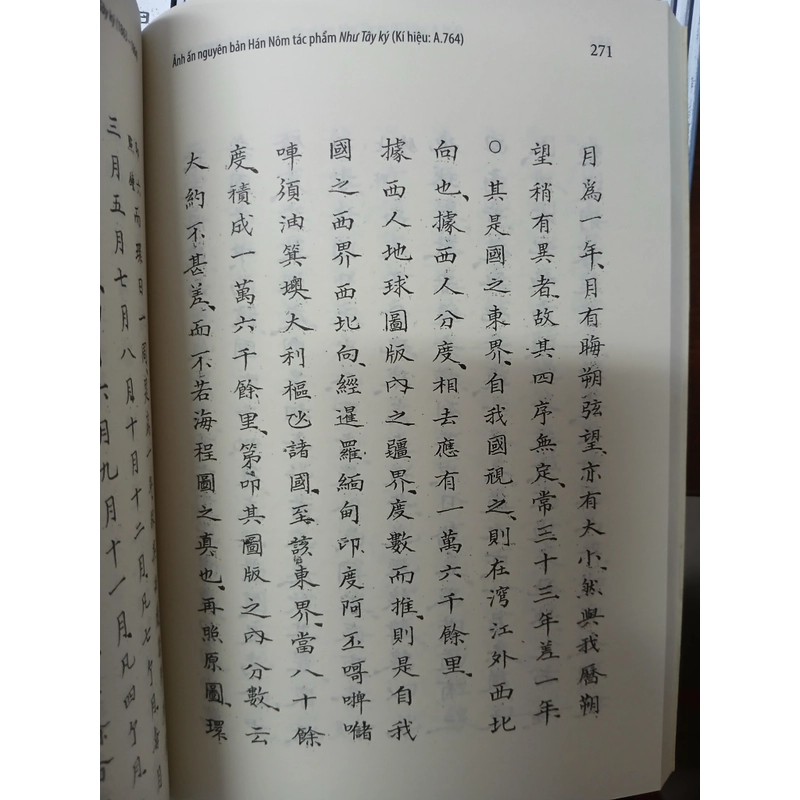 Ảnh ấn nguyên bản Hán Nôm tác phẩm Như Tây ký (Kí hiệu: A.764)
271
月爲一年、月有晦朔弦望、亦有大小、然與我曆朔
望稍有異者、故其四序無定、常三十三年差一年、
○其是國之東界、自我國視之、則在灣江外西北
向也、據西人分度、相去應有一萬六千餘里、
據西人地球圖版內之疆界、度數而推、則是自我
國之西界西北向、經暹羅緬甸印度阿丕哥
唓須油箕墺大利樞諸國、至該東界、當八十餘
度、積成一萬六千餘里、第卬其圖版之內分數、云
大約不甚差、而不若海程圖之真也、再照原圖、環
三月五月七月八月十月十二月凡七
六月九月十一月凡四